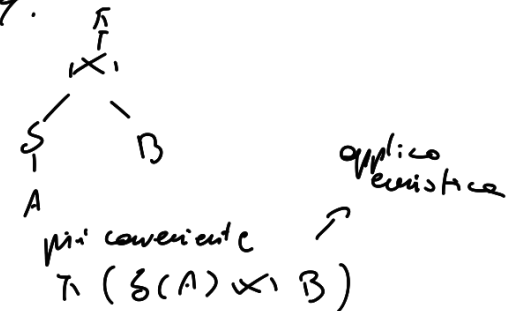 7.
π
⋈
δ B
A
applico
euristica
più conveniente
π ( δ(A) ⋈ B )